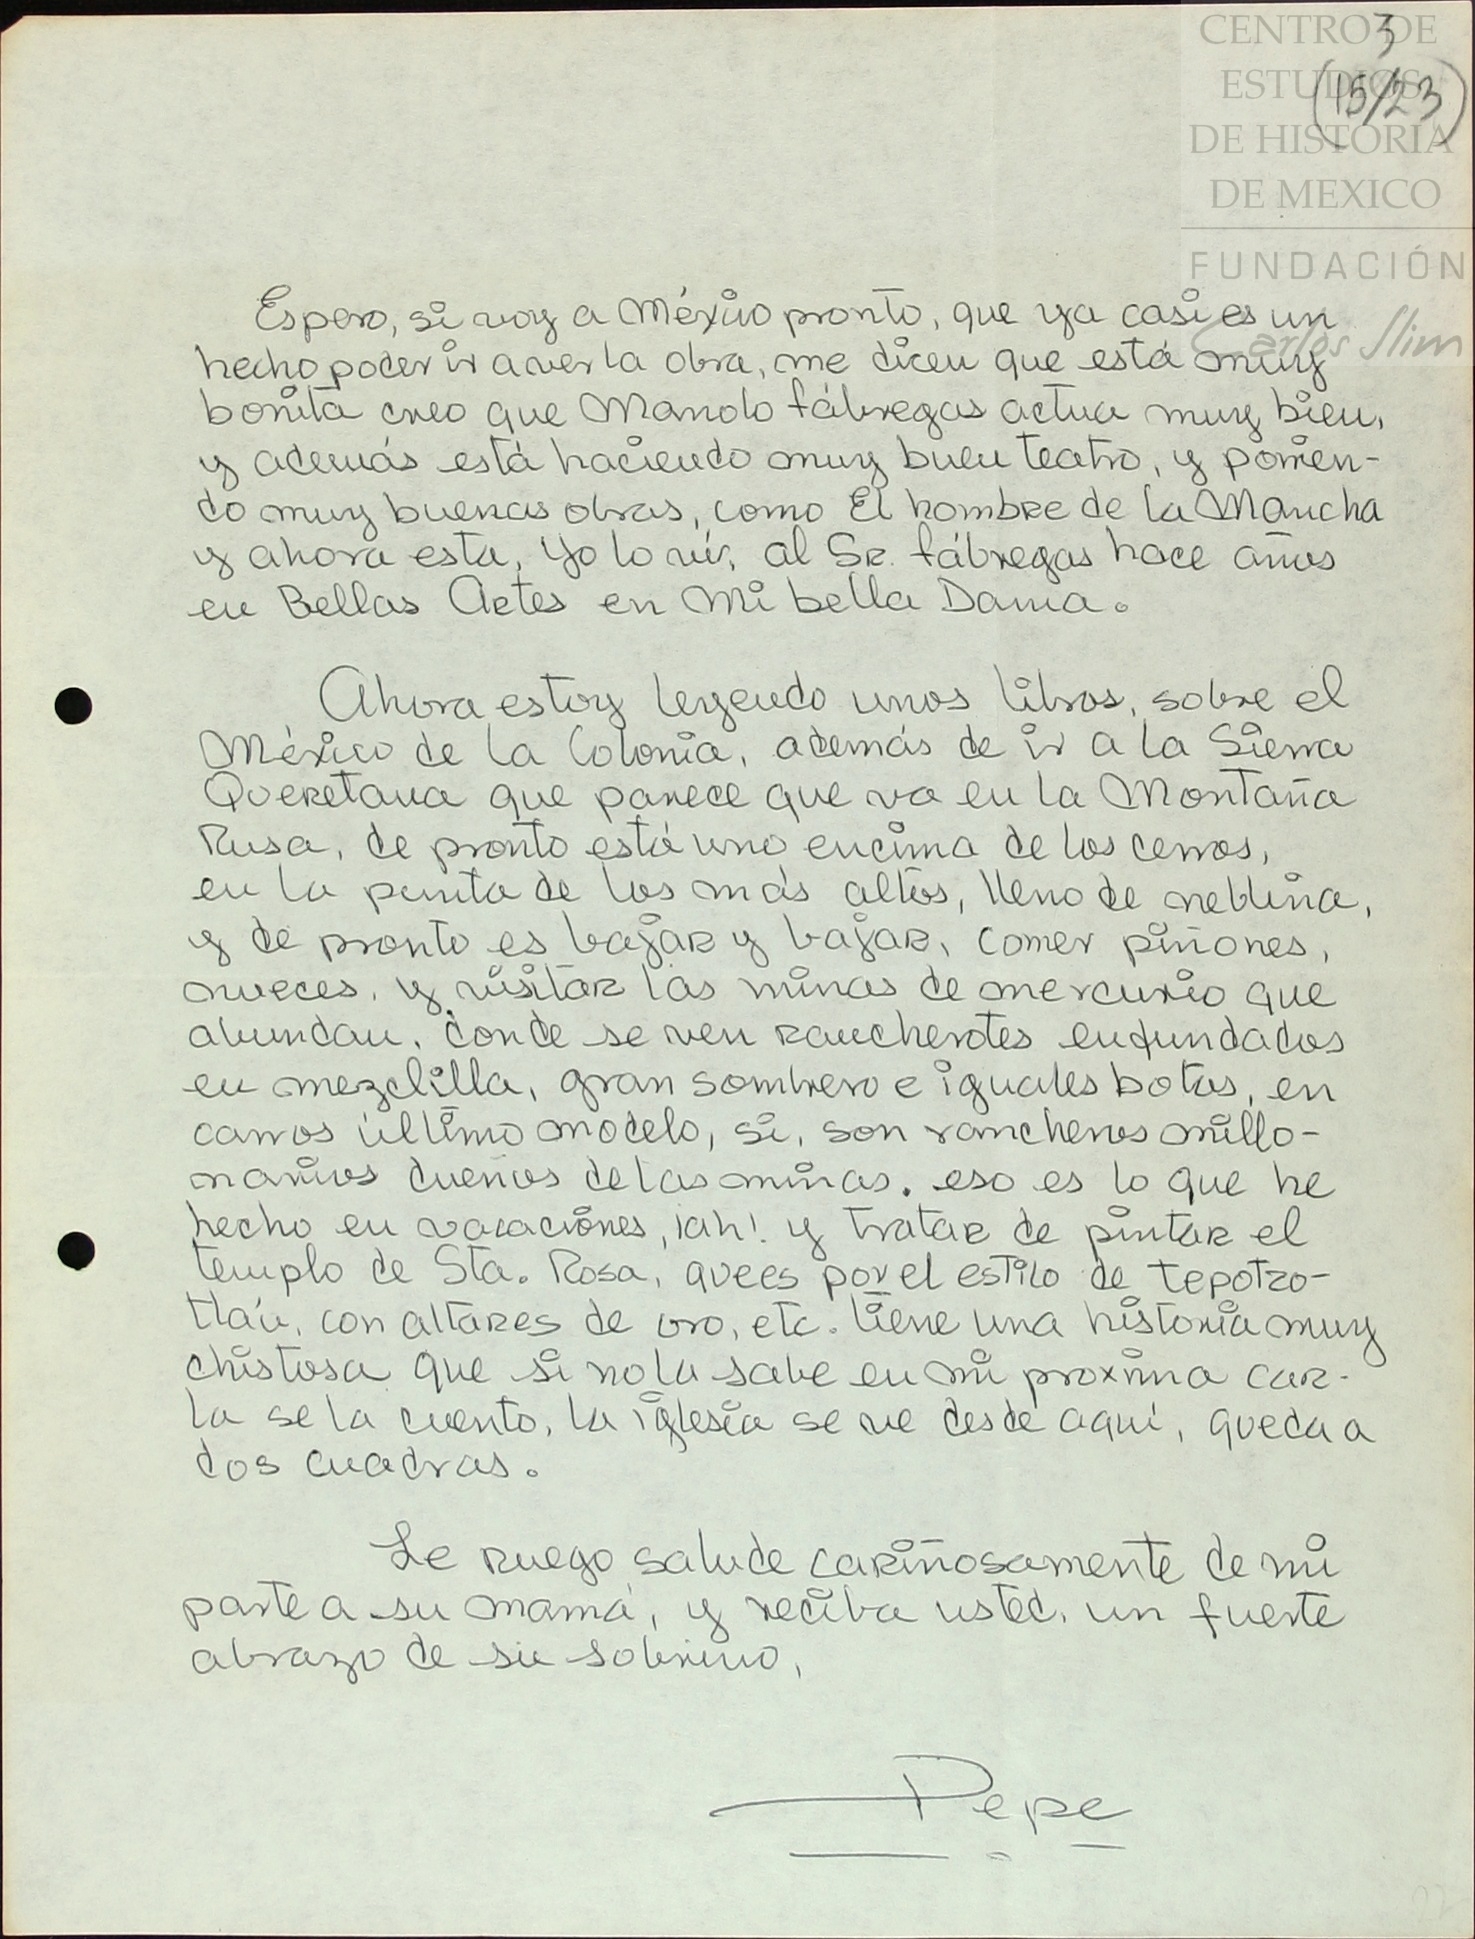 CENTRO DE
ESTUDIOS
DE HISTORIA
DE MEXICO
FUNDACIÓN
Carlos Slim
3
(15/23)
Espero, si voy a México pronto, que ya casi es un
hecho poder ir a ver la obra, me dicen que está muy
bonita creo que Manolo fábregas actua muy bien,
y además está haciendo muy buen teatro, y ponien-
do muy buenas obras, como El hombre de la Mancha
y ahora esta, Yo lo ví, al Sr. fábregas hace años
en Bellas Artes en Mi bella Dama.
Ahora estoy leyendo unos libros, sobre el
México de la Colonia, además de ir a la Sierra
Queretana que parece que va en la Montaña
Rusa, de pronto está uno encima de los cerros,
en la punta de los más altos, lleno de neblina,
y de pronto es bajar y bajar, comer piñones,
nueces, y visitar las minas de mercurio que
abundan, donde se ven rancherotes enfundados
en mezclilla, gran sombrero e iguales botas, en
carros último modelo, si, son rancheros millo-
narios dueños de las minas. eso es lo que he
hecho en vacaciones, ¡ah! y tratar de pintar el
templo de Sta. Rosa, que es por el estilo de tepotzo-
tlán, con altares de oro, etc. tiene una historia muy
chistosa que si no la sabe en mi proxima car-
ta se la cuento, la iglesia se ve desde aquí, queda a
dos cuadras.
Le ruego salude cariñosamente de mi
parte a su mamá, y reciba usted, un fuerte
abrazo de su sobrino,
Pepe